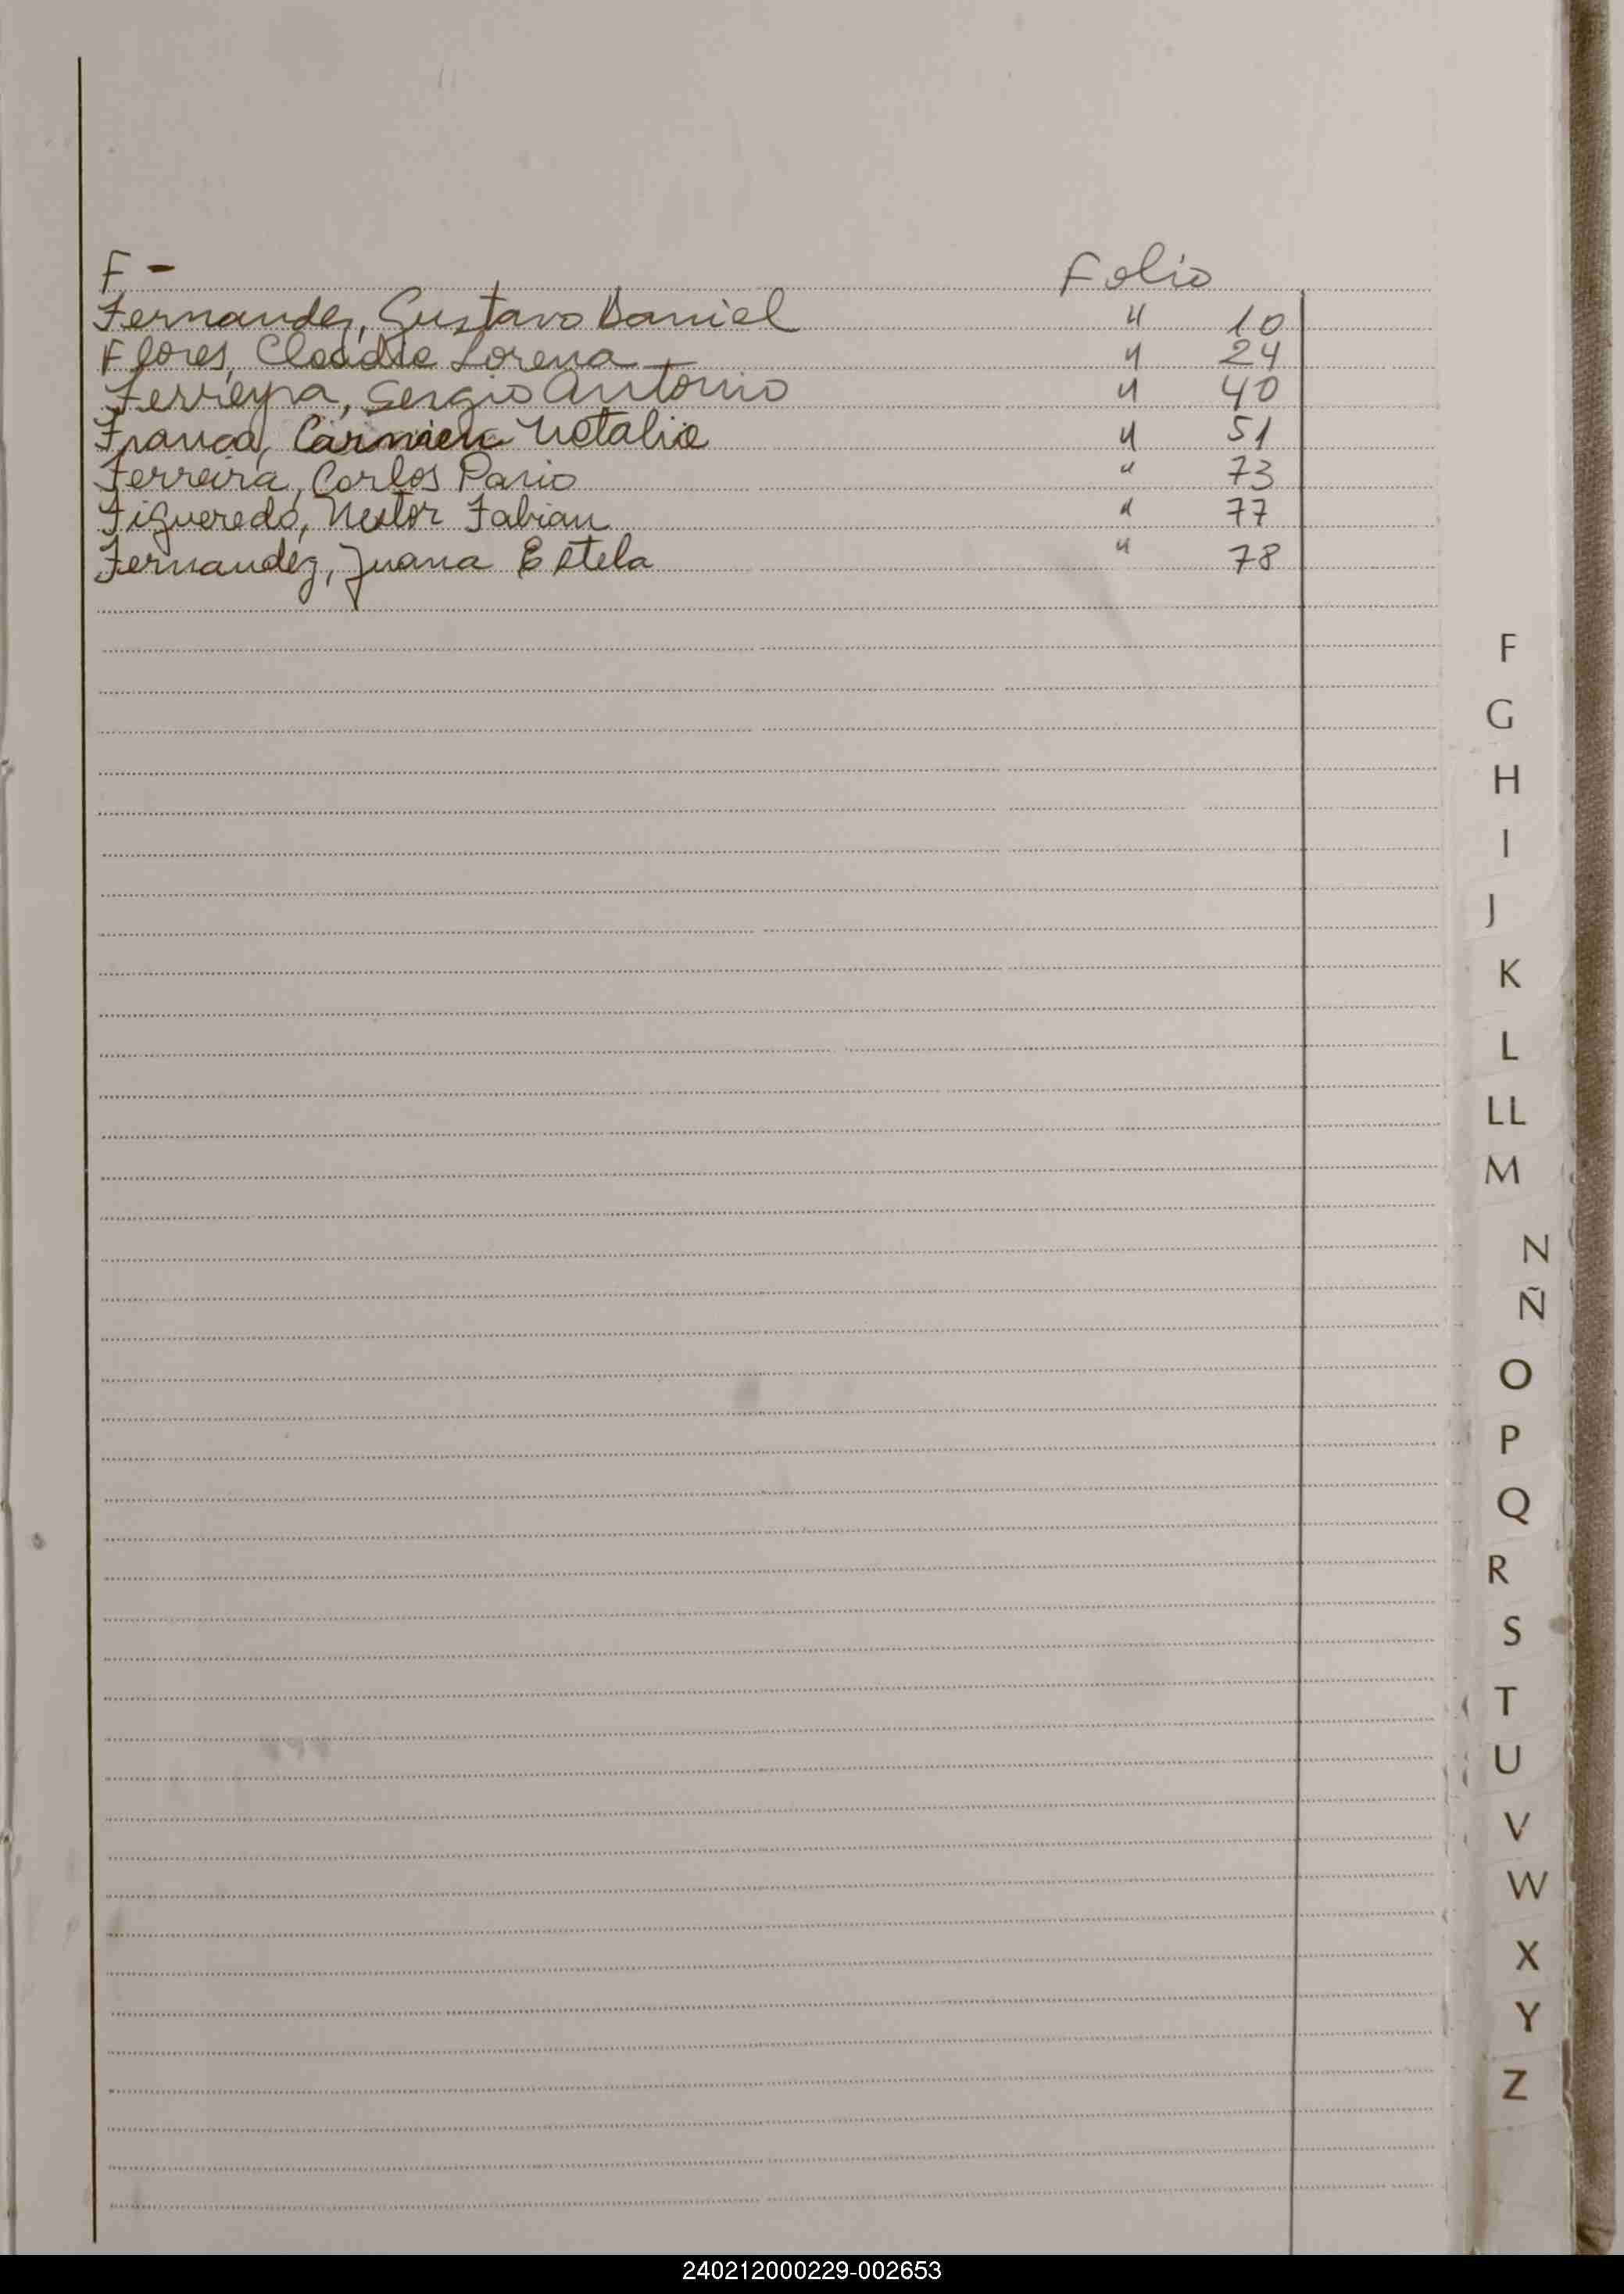 F - Folio
Fernandez, Gustavo Daniel " 10
Flores, Claudia Lorena " 24
Ferreyra, Sergio Antonio " 40
Franca, Carmen Natalia " 51
Ferreira, Carlos Dario " 73
Figueredo, Nestor Fabian " 77
Fernandez, Juana Estela " 78
F
G
H
I
J
K
L
LL
M
N
Ñ
O
P
Q
R
S
T
U
V
W
X
Y
Z
240212000229-002653